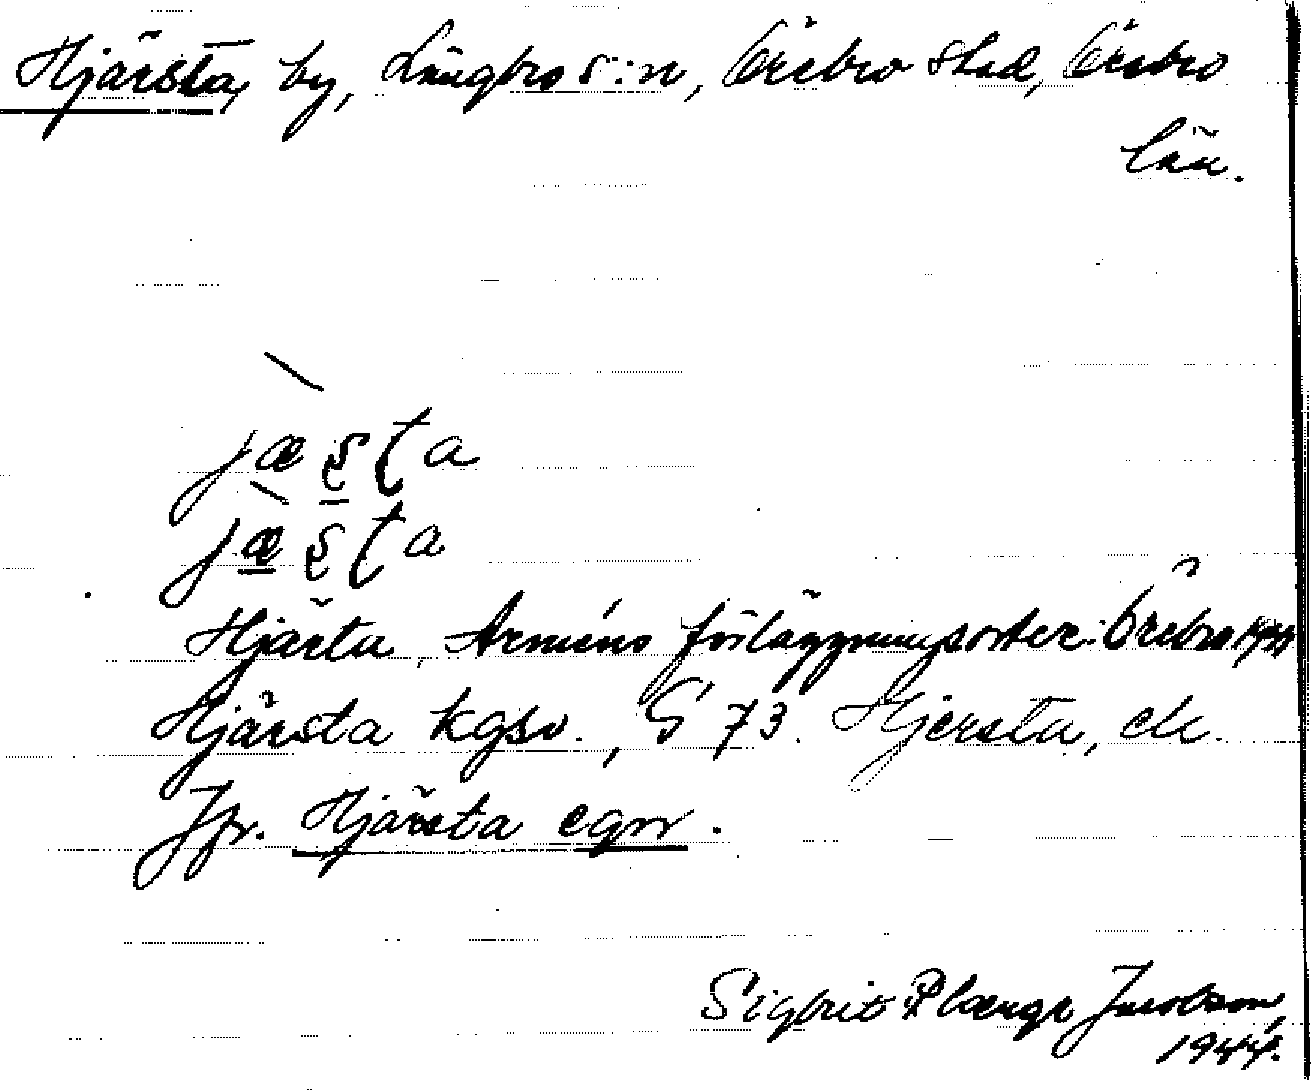 Hjärsta, by, Längbro s:n, Örebro stad, Örebro
län.
jæʂʈa
jæʂʈa
Hjärsta, Arméns förläggningsorter: Örebro
Hjärsta kgsv., G 73. Hjersta, ek.
Jfr. Hjärsta egnr.
Sigbrit Plænge Jacobson,
1944.